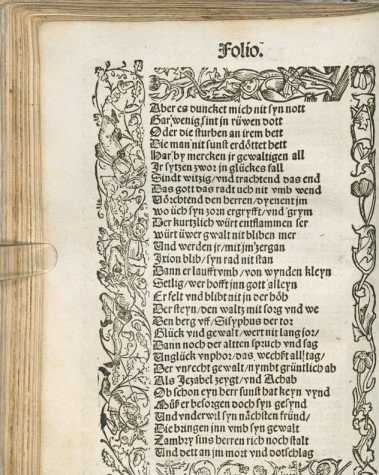 Folio.
Aber es duncket mich nit syn nott
Gar wenig sint jn rüwen dott
Oder die sturben an irem bett
Die man nit sunst erdöttet hett
Har by mercken jr gewaltigen all
Jr sytzen zwor jn glückes fall
Sindt witzig/vnd trachtend das end
Das gott das radt üch nit vmb wend
Vörchtend den herren/dyenent jm
wo üch syn zorn ergryfft/vnd grym
Der kurtzlich würt entflammen ser
würt üwer gwalt nit bliben mer
Und werden jr/mit jm zergan
Jxion blib/syn rad nit stan
Dann er laufft vmb/von wynden kleyn
Sellig/wer hofft jnn gott alleyn
Er felt vnd blibt nit jn der höh
Der steyn/den waltz mit sorg vnd we
Den berg vff/Sisyphus der tor
Glück vnd gewalt/wert nit lang jor/
Dann noch der altten spruch vnd sag
Unglück vnd hor/das wechßt all tag/
Der vnrecht gewalt/nymbt grüntlich ab
Als Jezabel zeygt/vnd Achab
Ob schon eyn herr sunst hat keyn vynd
Müß er besorgen doch syn gesynd
Und vnderwil syn nächsten fründ/
Die bringen jnn vmb syn gewalt
Zambry sins herren rich noch stalt
Und dett an jm mort vnd dotschlag